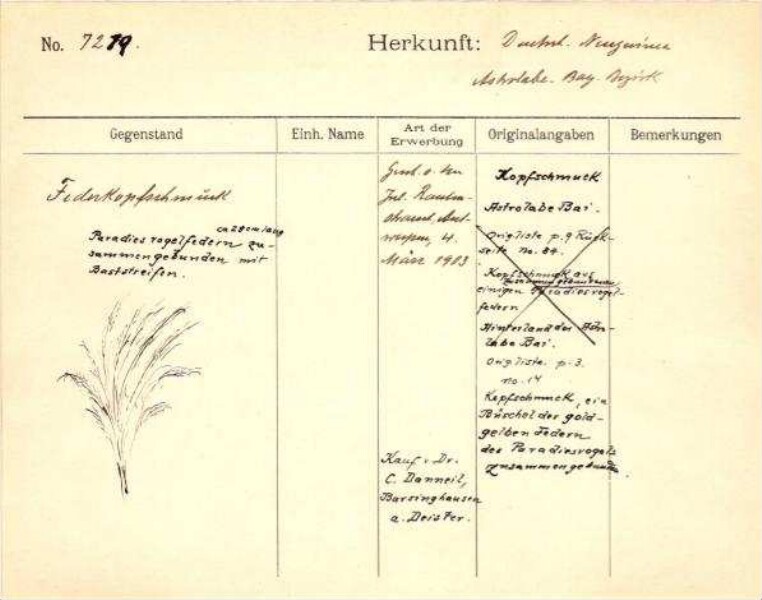 No. 7219.
Herkunft: Deutsch. Neuguinea
Astrolabe-Bay. Bezirk
Gegenstand
Einh. Name
Art der
Erwerbung
Originalangaben
Bemerkungen
Federkopfschmuck
ca 28 cm lang
Paradiesvogelfedern zu-
sammengebunden mit
Baststreifen.
März 1903
Kauf v. Dr.
C. Danneil,
Barsinghausen
a. Deister.
Kopfschmuck
Astrolabe Bai.
Origliste p. 9 Rück-
seite no. 84.
Kopfschmuck aus
zusammengebundenen
einigen Paradiesvogel-
federn
Hinterland der Astro-
labe Bai.
Origliste. p. 3.
no. 14
Kopfschmuck, ein
Büschel der gold-
gelben Federn
des Paradiesvogels
zusammengebunden